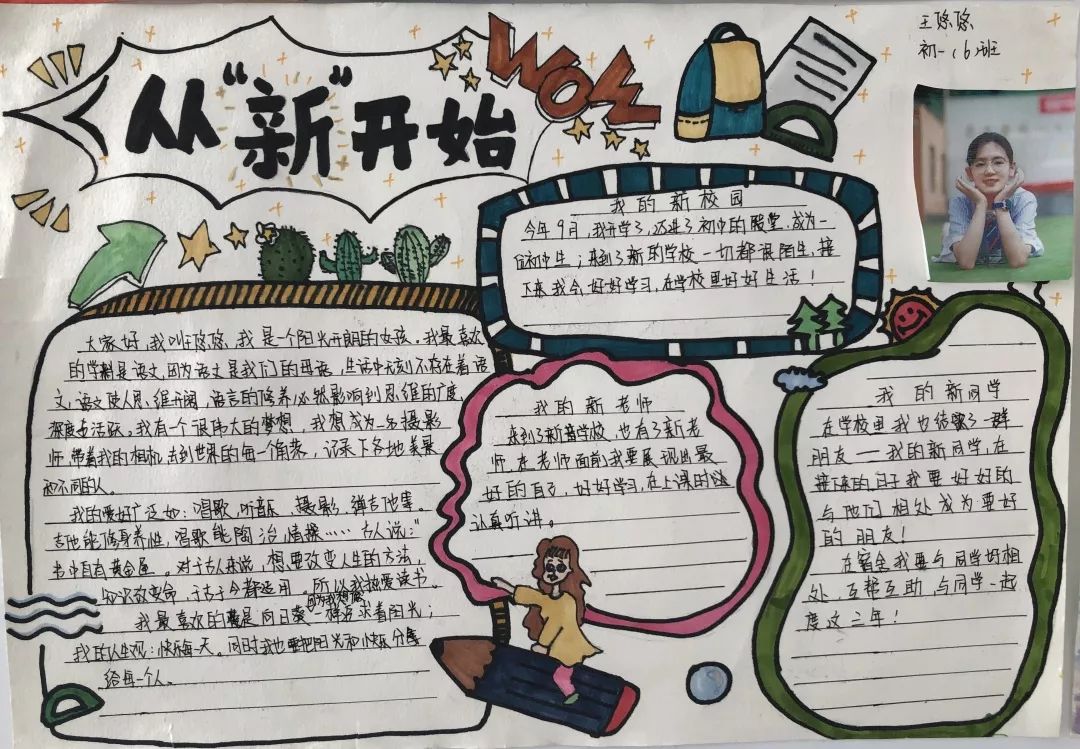 王悠悠
初一(6)班
从“新”开始
WOW
我的新校园
今年9月，我开学了，迈进了初中的殿堂，成为一
位初中生；来到了新的学校一切都很陌生，接
下来我会好好学习，在学校里好好生活！
大家好，我叫王悠悠，我是一个阳光开朗的女孩。我最喜欢
的学科是语文，因为语文是我们的母语，生活中无刻不存在着语
文，语文使人思维开阔，语言的修养必然影响到思维的广度、
深度与活跃。我有一个很伟大的梦想，我想成为一名摄影
师，带着我的相机去到世界的每一个角落，记录下各地美景
和不同的人。
我的爱好广泛如：唱歌，听音乐、摄影，弹吉他等。
吉他能修身养性，唱歌能陶冶情操……古人说：“
书中自有黄金屋。对于古人来说，想要改变人生的方法，
知识改变命，于古于今都适用。所以我热爱读书。
我最喜欢的花是向日葵，因为我想像一样寻求着阳光；
我的人生观：快乐每一天。同时我也要把阳光和快乐分享
给每一个人。
我的新老师
来到了新学校，也有了新老
师，在老师面前，我要展现出最
好的自己，好好学习，在上课时
认真听讲。
我的新同学
在学校里我也结了一群
朋友——我的新同学，在
接下来的日子我要好好的
与他们相处成为要好
的朋友！
在宿舍我要与同学好相
处，互帮互助，与同学一起
度这三年！